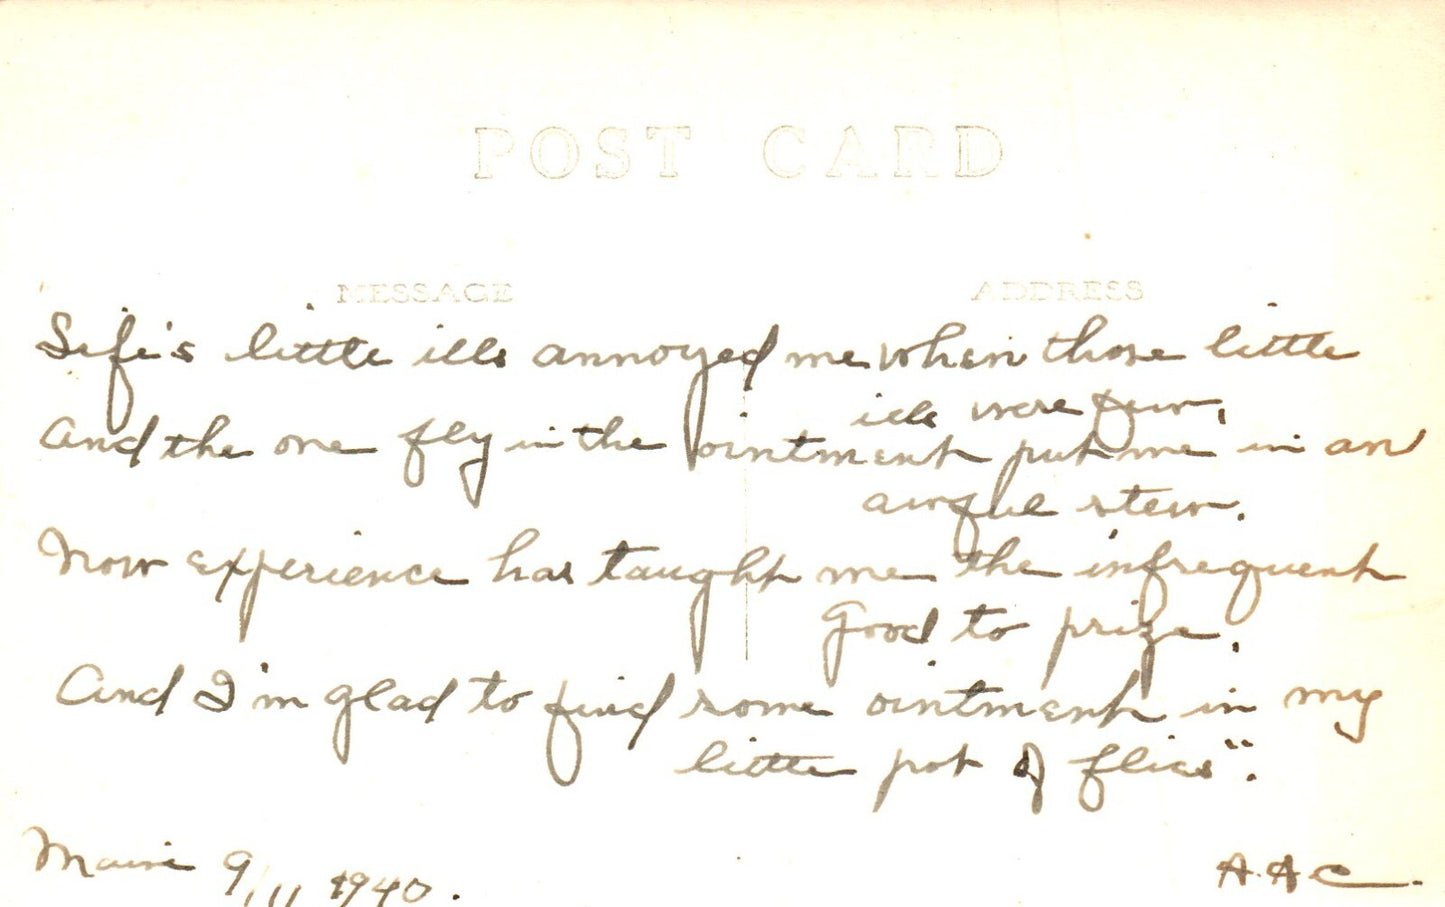 POST CARD
MESSAGE ADDRESS
Life's little ills annoyed me when those little
ills were few,
And the one fly in the ointment put me in an
awful stew.
Now experience has taught me the infrequent
good to prize,
And I'm glad to find some ointment in my
little pot of flies".
9/11 1940.
A.A.C.